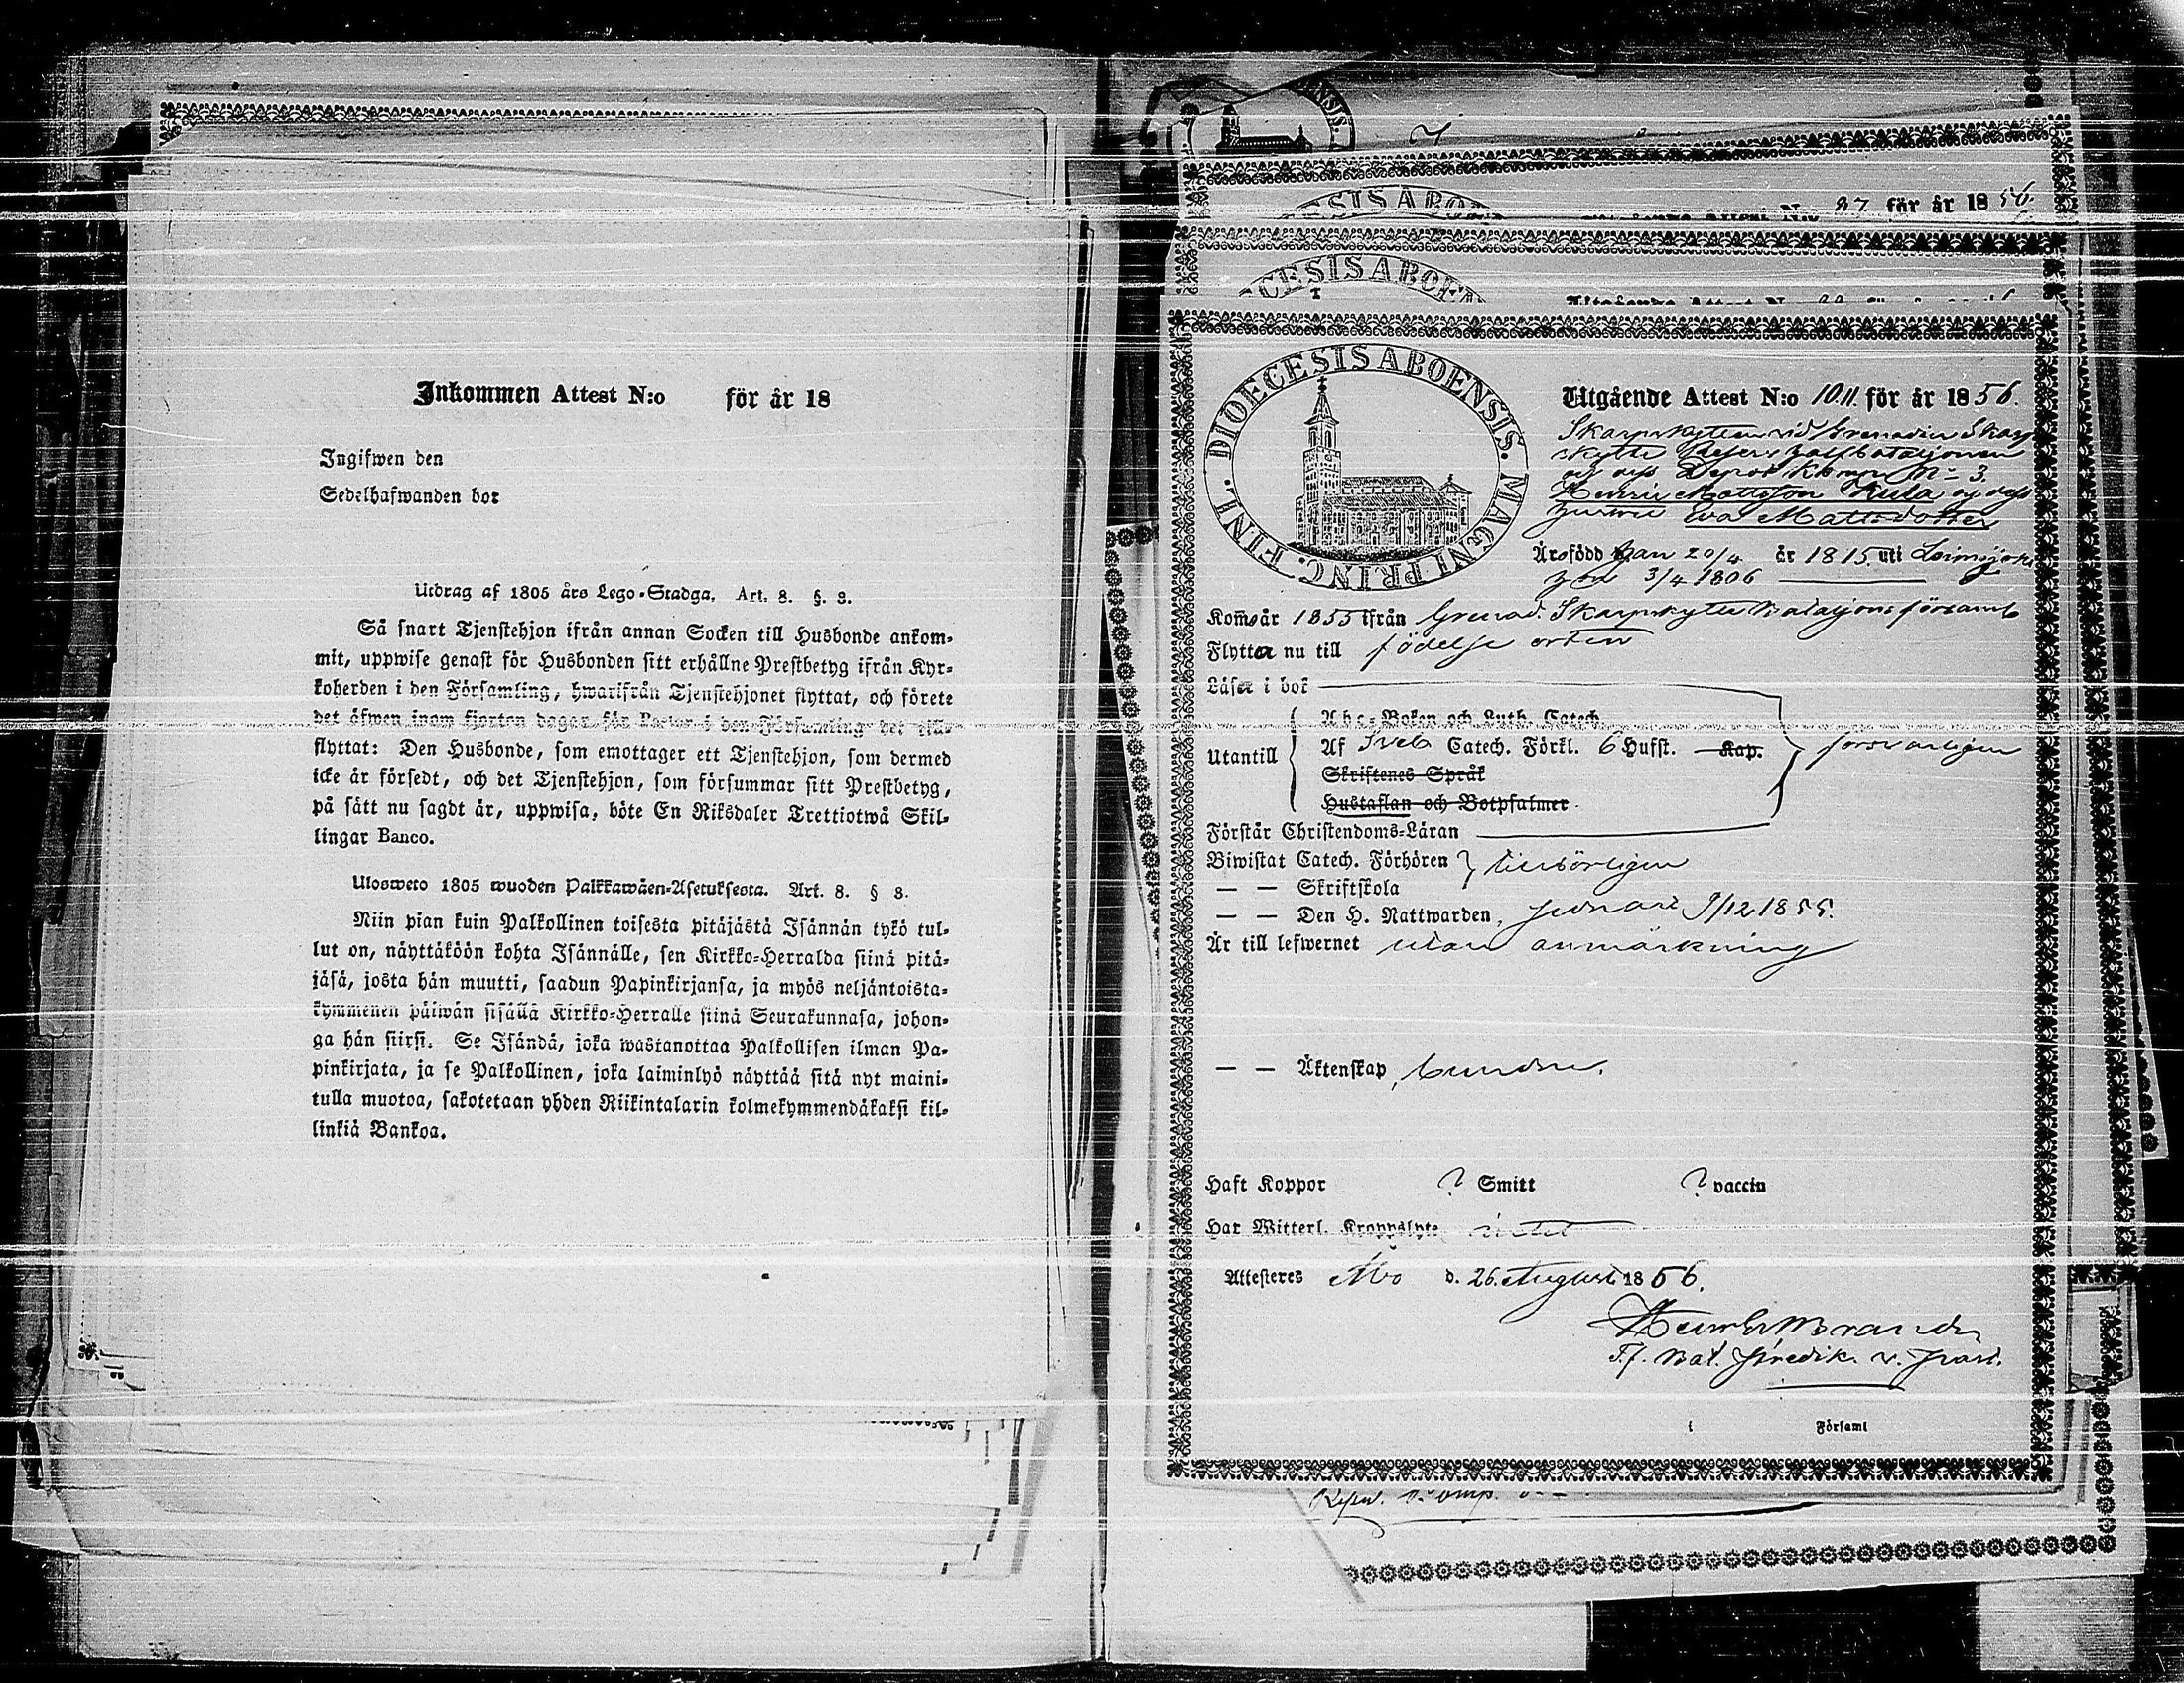 Inkommen Attest N:o för år 18
Ingifwen den
Sedelhafwanden bor
Utdrag af 1805 års Lego-Stadga. Art. 8. §. 8.
Så snart Tjenstehjon ifrån annan Socken till Husbonde ankom-
mit, uppwise genast för Husbonden sitt erhållne Prestbetyg ifrån Kyr-
koherden i den Församling, hwarifrån Tjenstehjonet flyttat, och förete
det äfwen inom fjorton dagar för Pastor i den Församling det till-
flyttat: Den Husbonde, som emottager ett Tjenstehjon, som dermed
icke är försedt, och det Tjenstehjon, som försummar sitt Prestbetyg,
på sätt nu sagdt är, uppwisa, böte En Riksdaler Trettiotwå Skil-
lingar Banco.
Ulosweto 1805 wuoden Palkkawäen-Asetuksesta. Art. 8. § 8.
Niin pian kuin Palkollinen toisesta pitäjästä Isännän tykö tul-
lut on, näyttäköön kohta Isännälle, sen Kirkko-Herralda siinä pitä-
jäsä, josta hän muutti, saadun Papinkirjansa, ja myös neljäntoista-
kymmenen päiwän sisällä Kirkko-Herralle siinä Seurakunnasa, johon-
ga hän siirsi. Se Isändä, joka wastanottaa Palkollisen ilman Pa-
pinkirjata, ja se Palkollinen, joka laiminlyö näyttää sitä nyt maini-
tulla muotoa, sakotetaan yhden Riikintalarin kolmekymmendäkaksi kil-
linkiä Bankoa.
ENSIS.
ESIS ABO
N:o 87 för år 1856.
CESIS ABOEN
Utgående Attest N
DIOECESIS ABOENSIS. MAGNI PRINC. FINL.
Utgående Attest N:o 1011. för år 1856.
Skarpskytten vid Grenadier Skarp
skytte Reserv bataljonen
och dess Depot Komp. N:o 3.
Henric Mattsson Kula och dess
hustru Eva Mattsdotter
Ärofödd han 20/4 år 1815. uti Loimijoki
hon 3/4 1806
Kom̄oår 1855 ifrån Grenad. Skarpskytte Bataljons församl
Flytta nu till födelse orten
Läser i bok
Utantill
Abc-Boken och Luth. Catech.
Af Sveb Catech. Förkl. 6 Hufst. Kap. försvarligen
Skriftenes Språk
Hustaflan och Botpsalmer
Förstår Christendoms-Läran
Biwistat Catech. Förhören tillbörligen
— — Skriftskola
— — Den H. Nattwarden, senast 9/12 1855.
Är till lefwernet utan anmärkning
— — Äktenskap, bunden.
Haft Koppor ? Smitt ? vaccin
Har Witterl. Kroppslyte intet
Attesteres Åbo d. 26. Augusti 1856.
T.f. Bat. Predik. v. past.
i Församl
Komp.